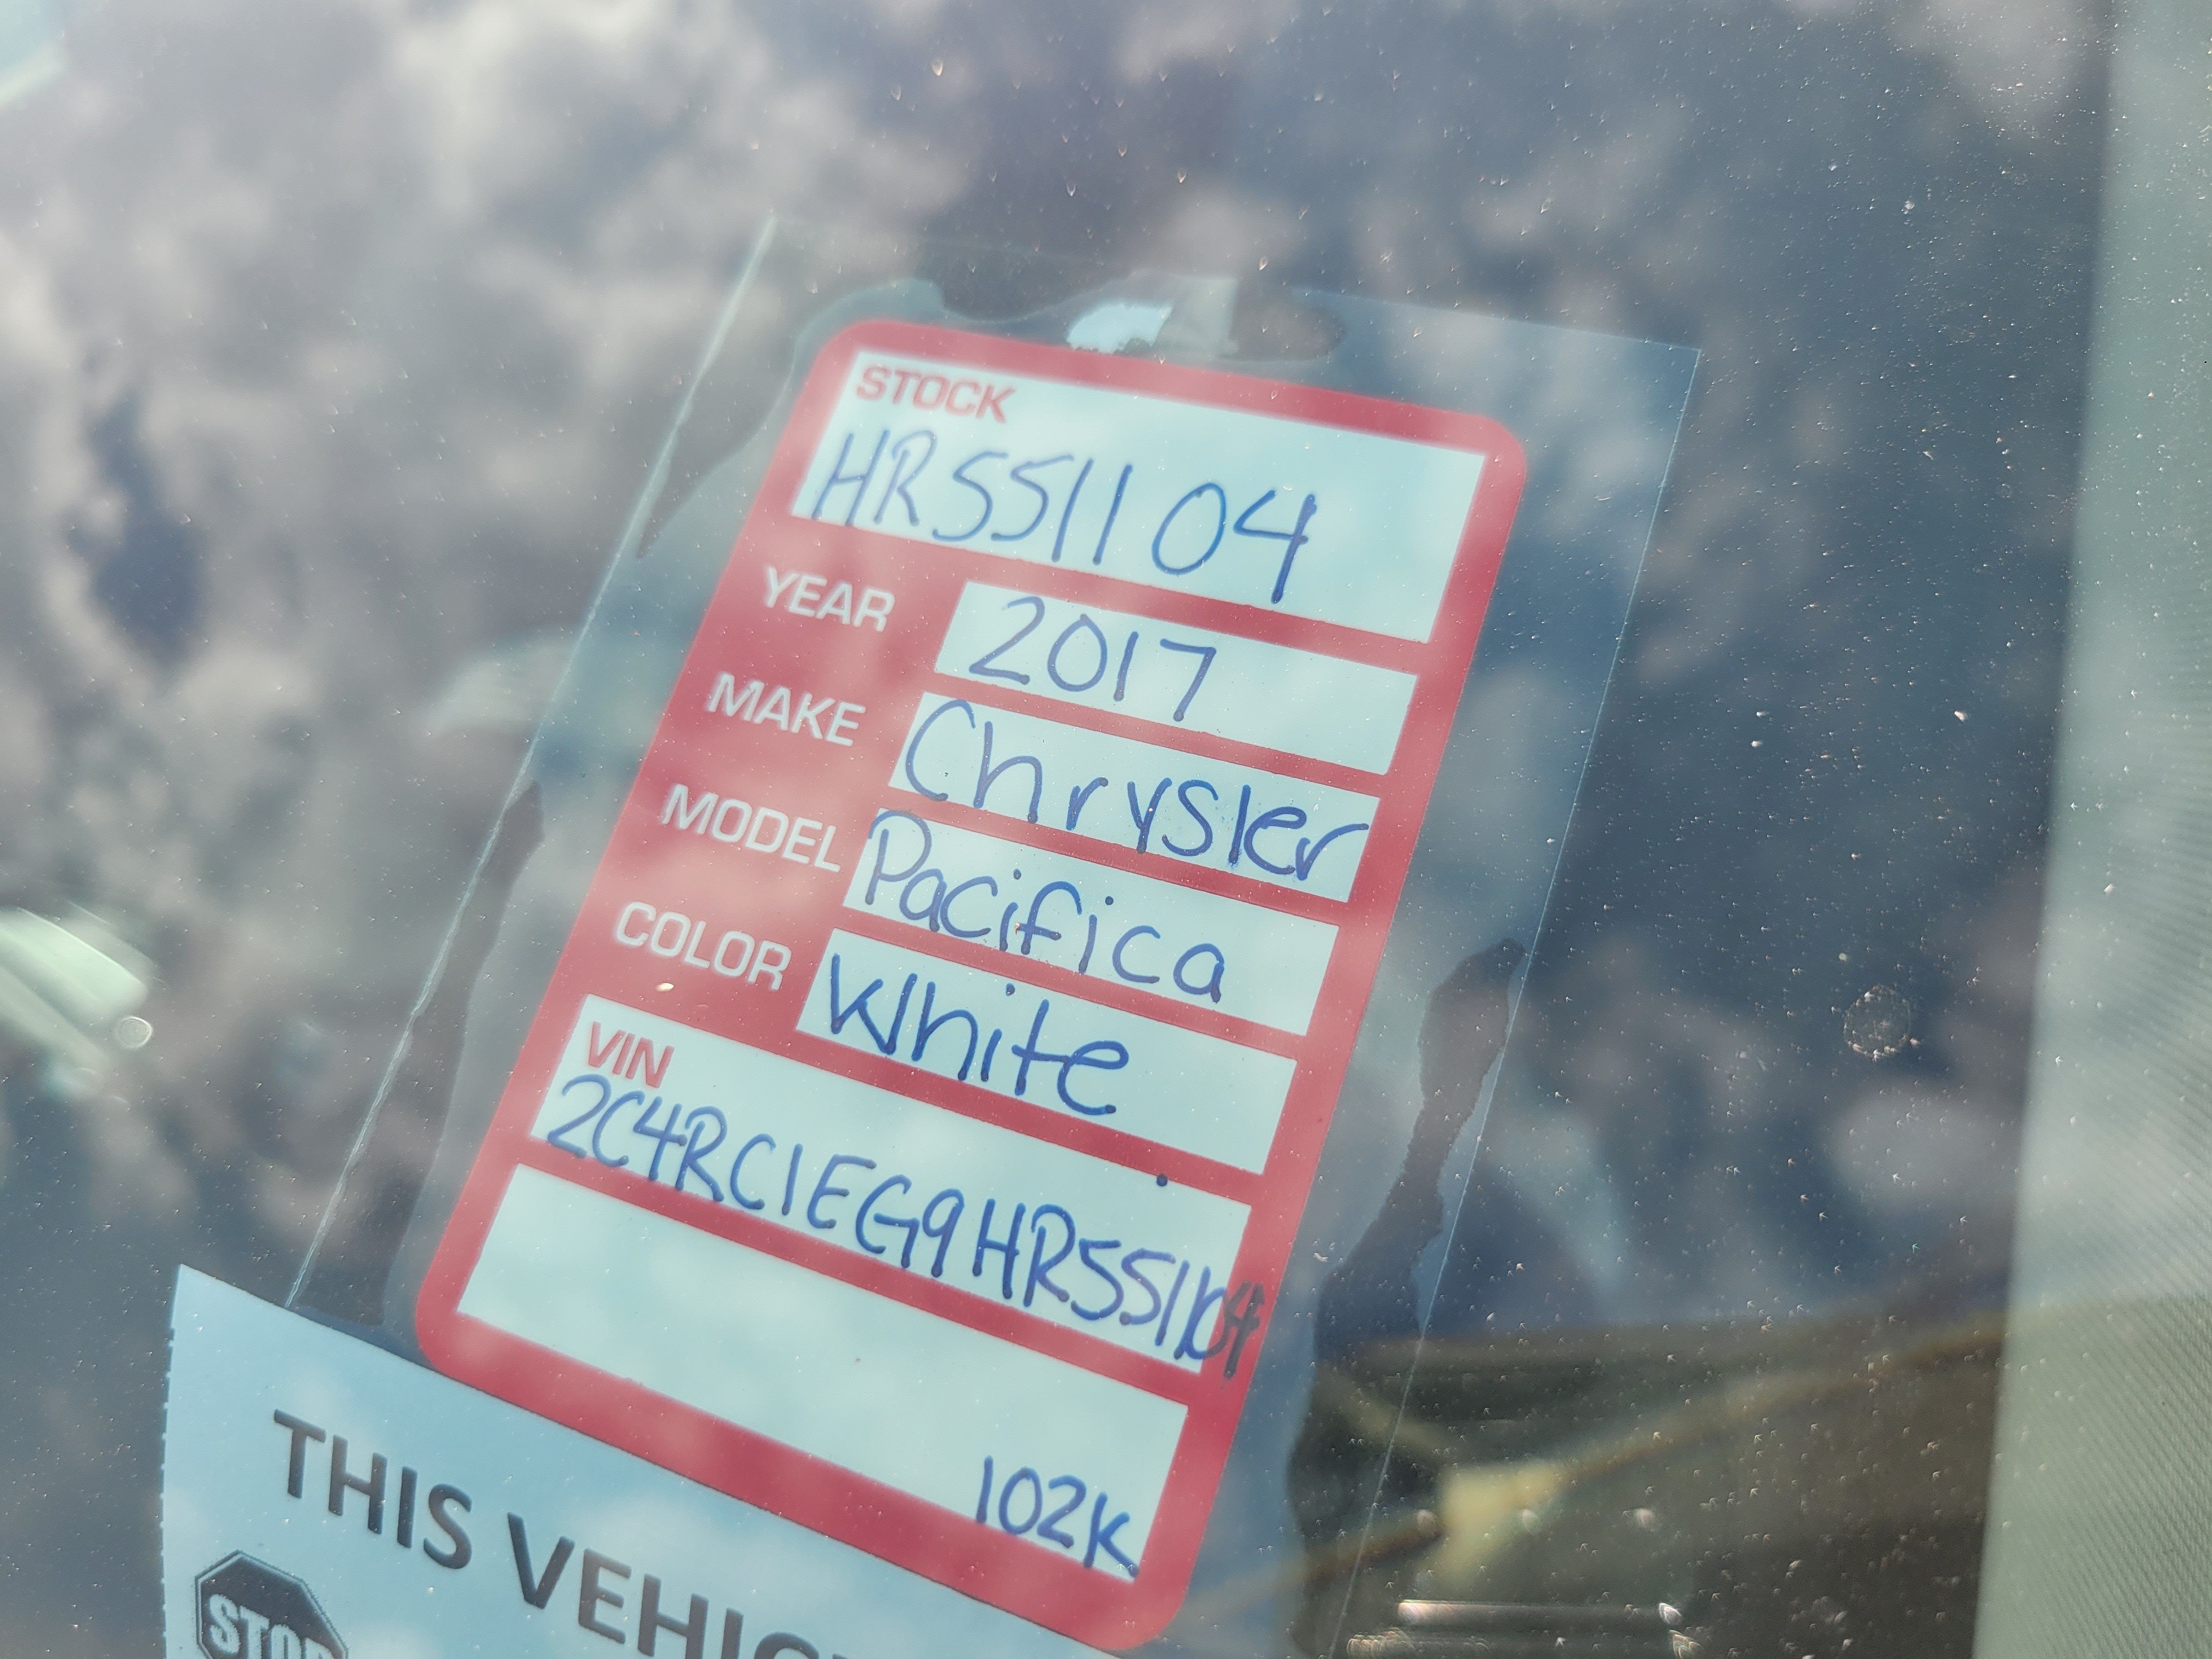 STOCK
HR551104
YEAR 2017
MAKE Chrysler
MODEL Pacifica
COLOR White
VIN
2C4RC1EG9HR551104
102K
THIS VEHIC
STOP